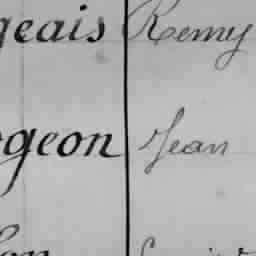 geais Remy
geon Jean